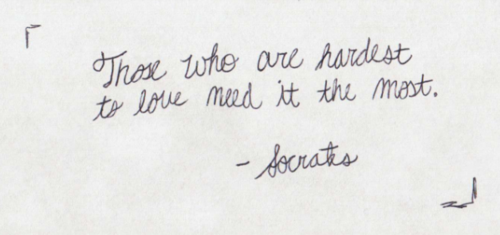 Those who are hardest
to love need it the most.
- Socrates